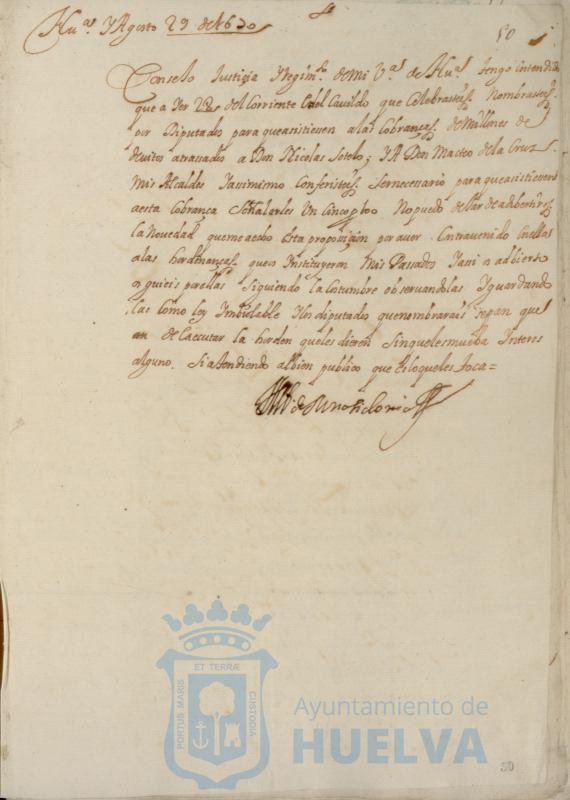 Hu.ª y Agosto 29 de
50
Consejo Justiçia y Regim.to de mi V.ª de Hu.ª tengo entendido
que ayer 28 del Corriente en el Cavildo que Celebrasteis. Nombrasteis.
por Diputados para que asistiesen a las Cobranças. de millones de
devitos atrasados a Don Nicolas Sotelo; y A Don Matteo de la Cruz.
Mis Alcaldes y asimismo Conferisteis. Ser necesario para que asistiesen
a esta Cobrança Señalarles Un Cinco por No puedo dejar de adbertiros
la Novedad que me a echo esta proposiçion por aver Contravenido
a las hordenanças. que os Instituyeron Mis Passados y asi os adbierto
que Siguiendo la Costumbre observandolas y Guardando
las como ley Imbiolable los diputados que nombrarais sepan que
an de executar la horden que les dieren Sin que les mueba Interes
alguno. Si atendiendo al bien publico que es lo que les toca=
PORTUS MARIS
ET TERRÆ
CUSTODIA
Ayuntamiento de
HUELVA
50